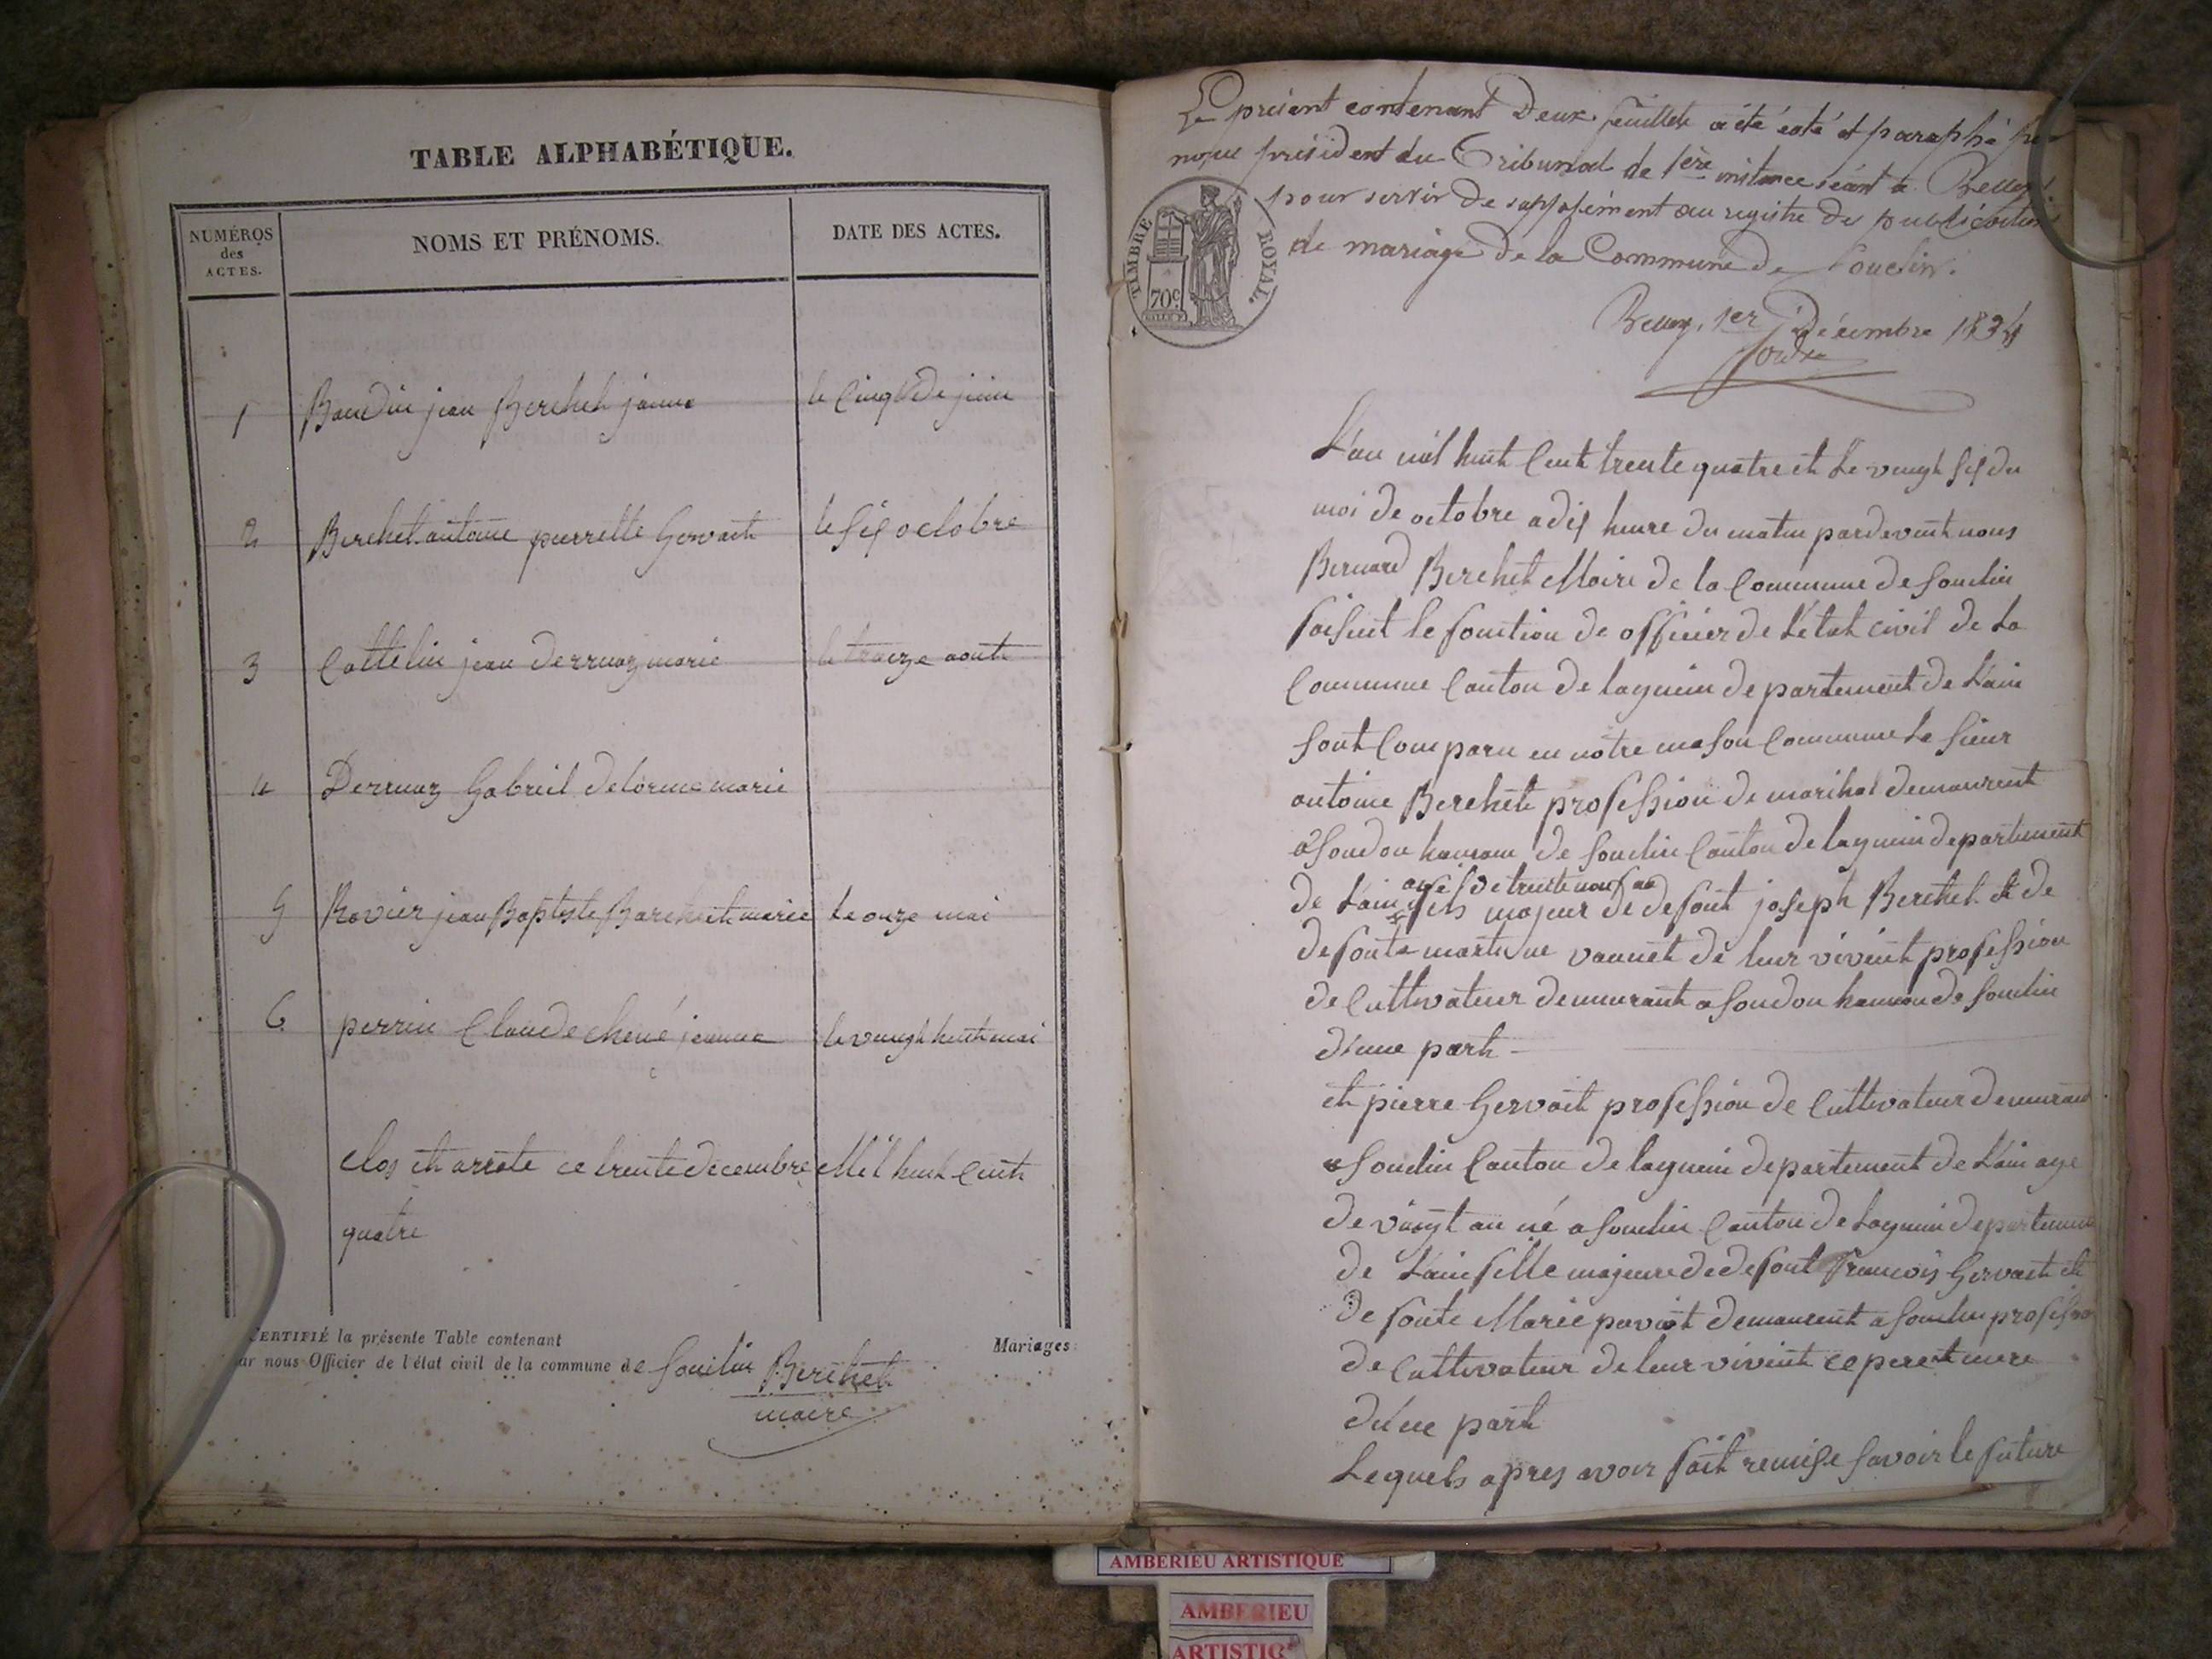 TABLE ALPHABÉTIQUE.
NUMÉROS des ACTES.
NOMS ET PRÉNOMS.
DATE DES ACTES.
1 Baudin jean Berchet janne le Cinq de juin
2 Berchet antoine pierrette Gervait le six octobre
3 Cottelin jean Derruaz marie le traize aout
4 Derruaz Gabriel delorme marie
5 Rovier jean Baptiste Barchet marie le onze mai
6 perrin Claude chené jeanne le vingt huit mai
Clos et arrete ce trente decembre Mil huit Cent
quatre
CERTIFIÉ la présente Table contenant Mariages
par nous Officier de l'état civil de la commune de Souclin Berchet
maire
Le présent contenant Deux feuillets a été coté et paraphé par
nous président du Tribunal de 1ère instance séant à Belley
pour servir de supplément au registre de publications
de mariage de la Commune de Souclin.
Belley, 1er Décembre 1834
TIMBRE ROYAL.
70c
L'an mil huit Cent trente quatre et Le vingt six du
moi de octobre a dix heure du matin pardevent nous
Bernard Berchet Maire de la Commune de Souclin
faisent le fonction de officier de L'etat civil de La
Commune Canton de lagnieu departement de L'ain
sont Comparu en notre mason Commune Le sieur
antoine Berchet profession de marihal demaurent
a Soudon hameau de Souclin Canton de lagnieu departement
agé de trente neuf an
de L'ain fils majeur de defont joseph Berchet et de
defonte martine vannet de leur vivent profession
de Cultivateur demeurant a Soudon hameau de Souclin
d'une part
et pierre Gervait profession de Cultivateur demeurant
a Souclin Canton de lagnieu departement de L'ain age
de vingt an né a Souclin Canton de Lagnieu departement
de L'ain fille majeure de defont francois Gervait et
de fonte Marie paviot demaurent a Souclin profession
de Cultivateur de leur vivent ce pere et mere
d'une part
Lequels apres avoir fait remise savoir le future
AMBERIEU ARTISTIQUE
AMBERIEU
ARTISTIQ